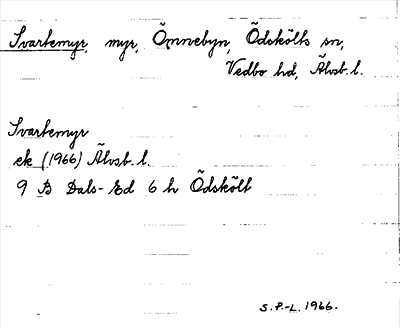 Svartemyr, myr, Ömnebyn, Ödskölts sn,
Vedbo hd, Älvsb. l.
Svartemyr
ek (1966) Älvsb. l.
9 B Dals-Ed 6 h Ödskölt
S.P.-L. 1966.